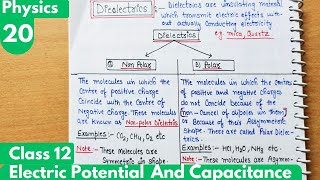 Physics
20
Dielectrics :- Dielectrics are insulating material
which transmit electric effects with-
actually conducting electricity
eg mica, Quartz
Dielectrics
① Non Polar
② Polar
The molecules in which the
Centre of positive charge
Coincide with the Centre of
Negative charge. These molecules
are known as Non-polar Dielectrics
Examples:- CO2, CH4, O2 etc
Note :- These molecules are
Symmetric in shape
The molecules in which the centre
of positive and negative charges
do not Coincide because of the
(non-Cancel of dipoles in them)
or Because of their Assymmetric
Shape. There are called Polar Dielec-
trics.
Examples:- HCl, H2O, NH3 etc.
Note :- These molecules are Assymm-
Class 12
Electric Potential And Capacitance